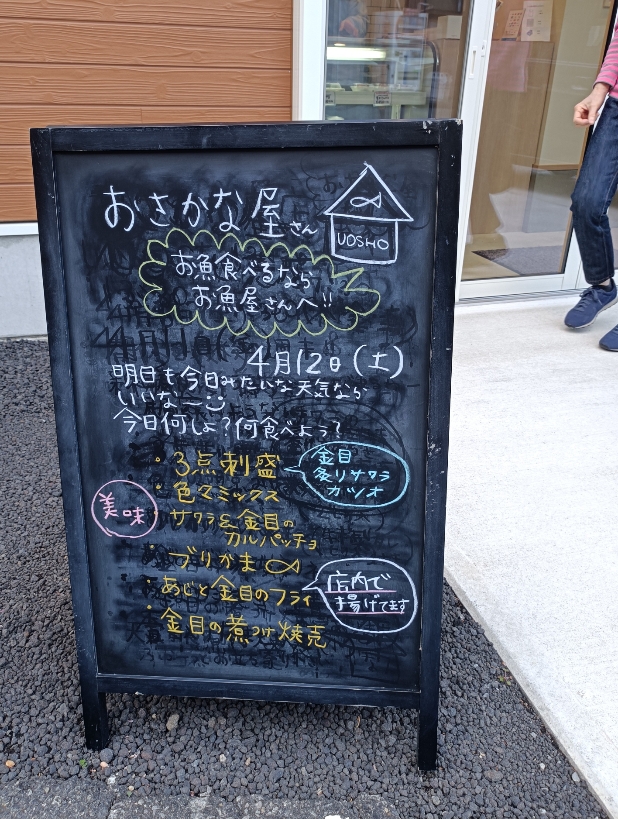 おさかな屋さん
UOSHO
お魚食べるなら
お魚屋さんへ!!
4月12日(土)
明日も今日みたいな天気なら
いいなー
今日何しよ?何食べよって
・3点刺盛
金目
炙りサワラ
カツオ
・色々ミックス
美味
・サワラ&金目の
カルパッチョ
・ブリかま
・あじと金目のフライ
店内で
揚げてます
・金目の煮つけ焼売